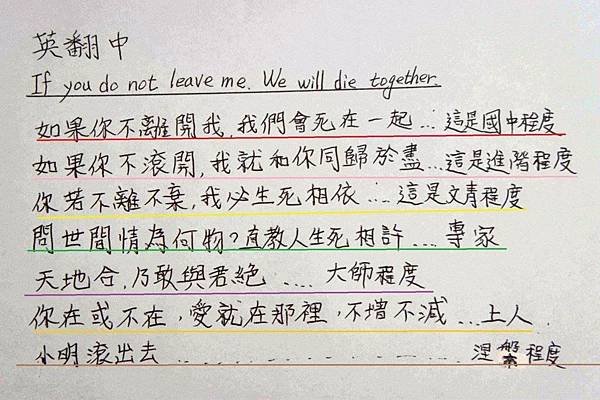 英翻中
If you do not leave me. We will die together.
如果你不離開我,我們會死在一起...這是國中程度
如果你不滾開,我就和你同歸於盡...這是進階程度
你若不離不棄,我必生死相依....這是文青程度
問世間情為何物?直教人生死相許....專家
天地合,乃敢與君絕.....大師程度
你在或不在,愛就在那裡,不增不減....上人
小明滾出去...............涅槃程度